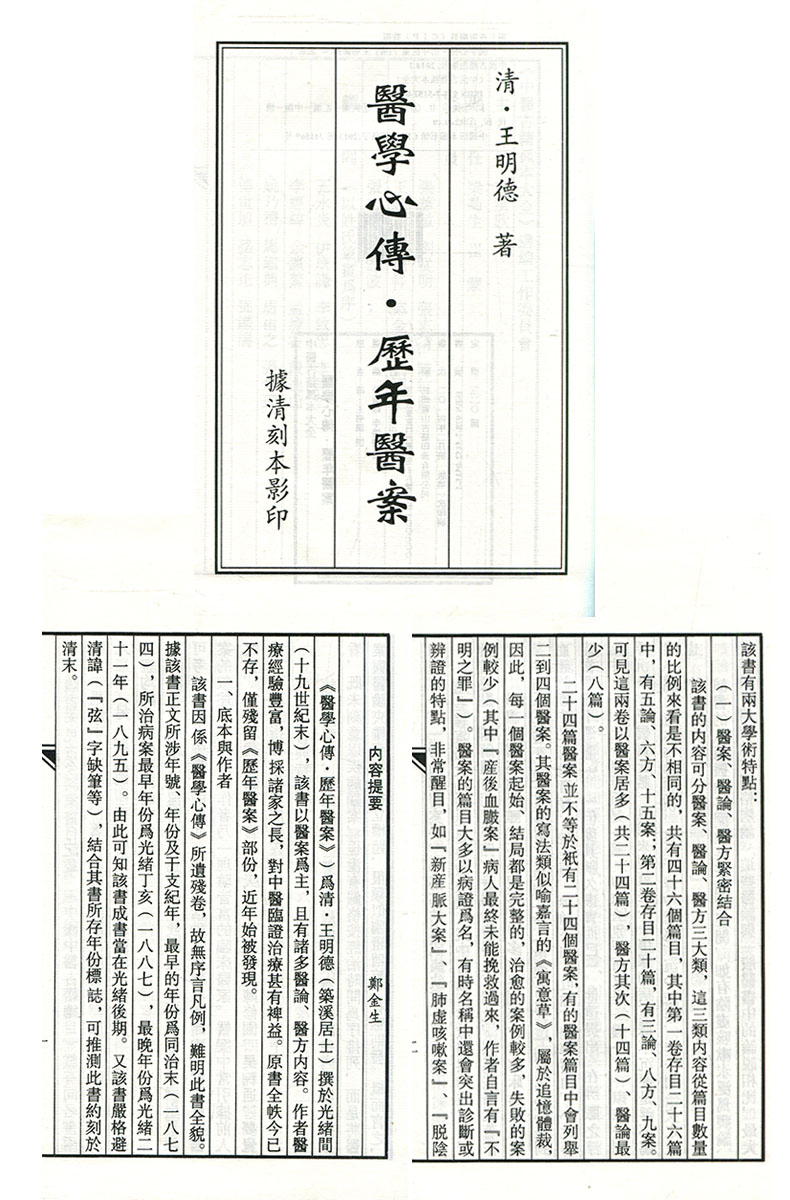 清·王明德 著
醫學心傳·歷年醫案
據清刻本影印
内容提要
鄭金生
《醫學心傳·歷年醫案》）爲清·王明德（築溪居士）撰於光緒間
（十九世紀末），該書以醫案爲主，且有諸多醫論、醫方内容。作者醫
療經驗豐富，博採諸家之長，對中醫臨證治療甚有裨益。原書全帙今已
不存，僅殘留《歷年醫案》部份，近年始被發現。
一、底本與作者
該書因係《醫學心傳》所遺殘卷，故無序言凡例，難明此書全貌。
據該書正文所涉年號、年份及干支紀年，最早的年份爲同治末（一八七
四），所治病案最早年份爲光緒丁亥（一八八七），最晚年份爲光緒二
十一年（一八九五）。由此可知該書成書當在光緒後期。又該書嚴格避
清諱（『弦』字缺筆等），結合其書所存年份標誌，可推測此書約刻於
清末。
該書有兩大學術特點：
（一）醫案、醫論、醫方緊密結合
該書的内容可分醫案、醫論、醫方三大類，這三類内容從篇目數量
的比例來看是不相同的，共有四十六個篇目，其中第一卷存目二十六篇
中，有五論、六方、十五案；第二卷存目二十篇，有三論、八方、九案。
可見這兩卷以醫案居多（共二十四篇），醫方其次（十四篇）、醫論最
少（八篇）。
二十四篇醫案並不等於衹有二十四個醫案，有的醫案篇目中會列舉
二到四個醫案。其醫案的寫法類似喻嘉言的《寓意草》，屬於追憶體裁，
因此，每一個醫案起始、結局都是完整的，治愈的案例較多，失敗的案
例較少（其中『産後血臌案』病人最終未能挽救過來，作者自言有『不
明之罪』）。醫案的篇目大多以病證爲名，有時名稱中還會突出診斷或
辨證的特點，非常醒目，如『新産脈大案』、『肺虚咳嗽案』、『脱陰